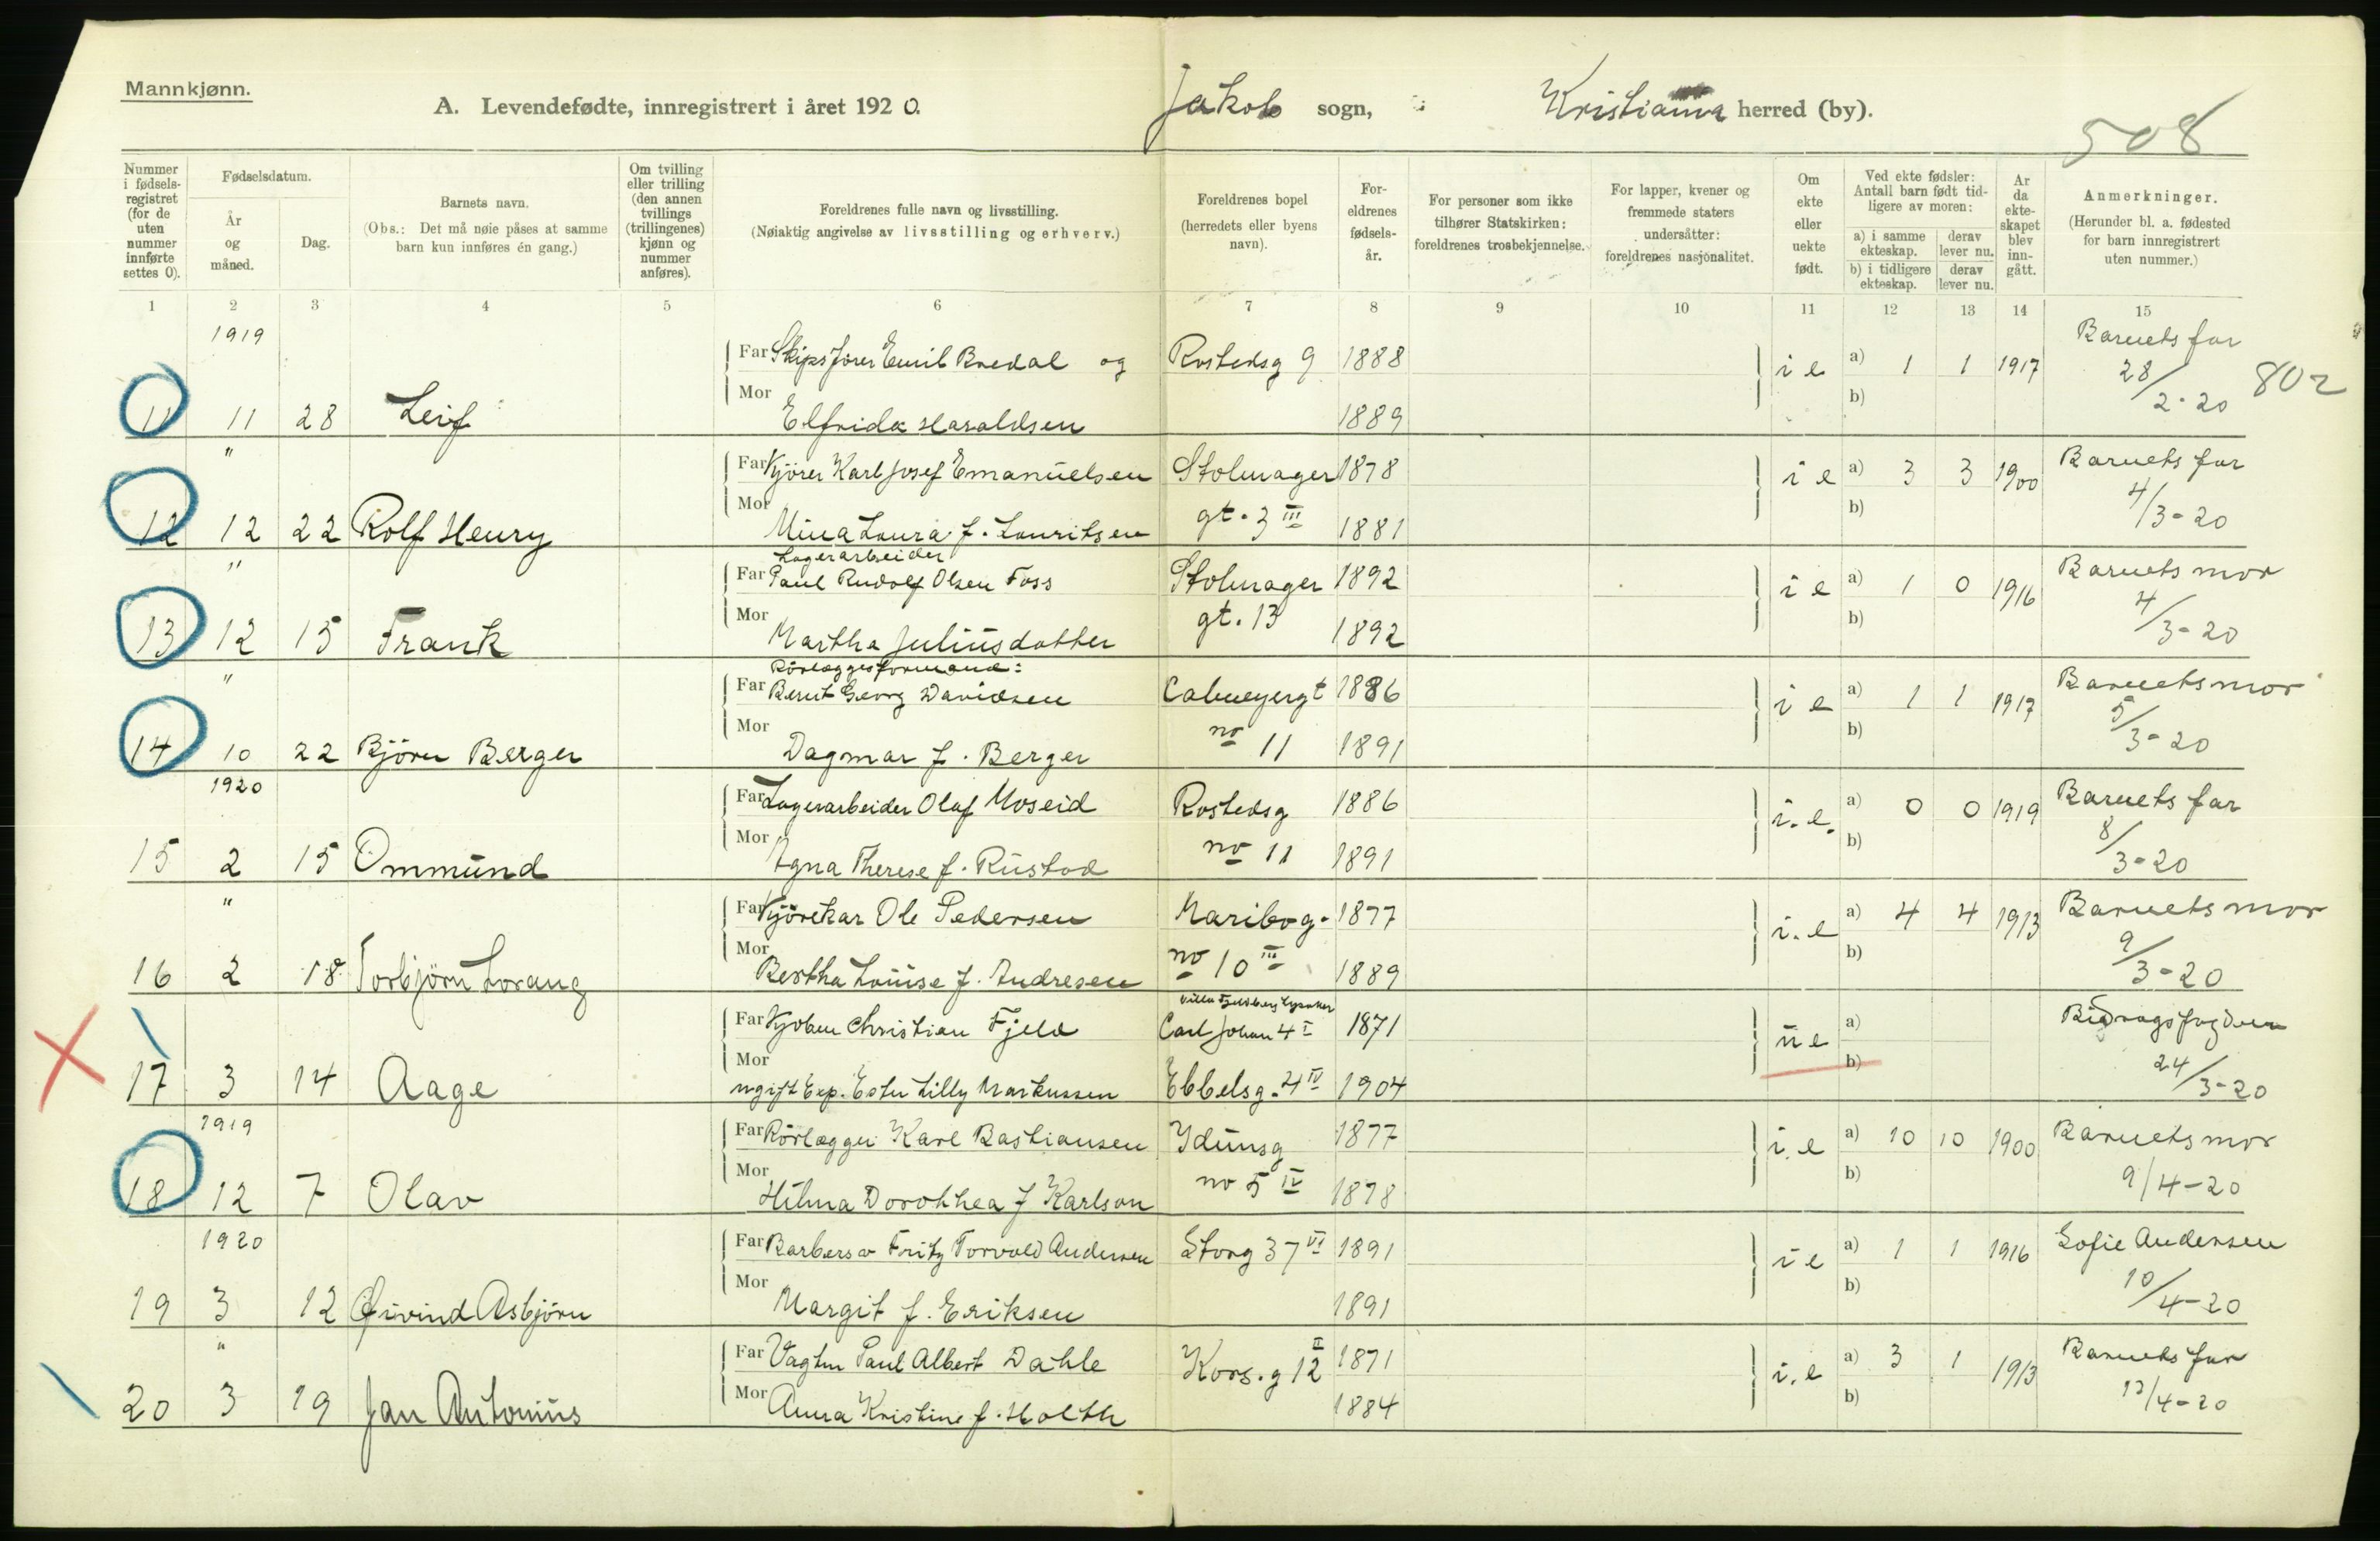 Mannkjønn.
A. Levendefødte, innregistrert i året 1920. Jakob sogn, Kristiania herred (by).
508
Nummer i fødselsregistret (for de uten nummer innførte settes 0).
Fødselsdatum.
År og måned.
Dag.
Barnets navn.
(Obs.: Det må nøie påses at samme barn kun innføres én gang.)
Om tvilling eller trilling (den annen tvillings (trillingenes) kjønn og nummer anføres).
Foreldrenes fulle navn og livsstilling.
(Nøiaktig angivelse av livsstilling og erhverv.)
Foreldrenes bopel (herredets eller byens navn).
Foreldrenes fødselsår.
For personer som ikke tilhører Statskirken: foreldrenes trosbekjennelse.
For lapper, kvener og fremmede staters undersåtter: foreldrenes nasjonalitet.
Om ekte eller uekte født.
Ved ekte fødsler: Antall barn født tidligere av moren:
a) i samme ekteskap. derav lever nu.
b) i tidligere ekteskap. derav lever nu.
Ar da ekteskapet blev inngått.
Anmerkninger.
(Herunder bl. a. fødested for barn innregistrert uten nummer.)
1 2 3 4 5 6 7 8 9 10 11 12 13 14 15
1919
Far Skipsfører Emil Bredal og Rostedsg 9 1888 i e a) 1 1 1917 Barnets far 28/2-20 802
11 11 28 Leif Mor Elfrida Haraldsen 1889 b)
"
Far Kjører Karl Josef Emanuelsen Stolmager 1878 i e a) 3 3 1900 Barnets far 4/3-20
12 12 22 Rolf Henry Mor Mina Laura f. Lauritsen gt. 3 III 1881 b)
"
Lagerarbeider
Far Paul Rudolf Olsen Foss Stolmager 1892 i e a) 1 0 1916 Barnets mor 4/3-20
13 12 15 Frank Mor Martha Juliusdatter gt. 13 1892 b)
"
Rörlæggerformand:
Far Bernt Georg Davidsen Calmeyergt 1886 i e a) 1 1 1917 Barnets mor 5/3-20
14 10 22 Björn Berger Mor Dagmar f. Berger no 11 1891 b)
1920
Far Lagerarbeider Olaf Moseid Rostedsg 1886 i. e. a) 0 0 1919 Barnets far 8/3-20
15 2 15 Ommund Mor Agna Therese f. Rustad no 11 1891 b)
"
Far Kjörekar Ole Pedersen Maribog. 1877 i. e a) 4 4 1913 Barnets mor 9/3-20
16 2 18 Torbjörn Lorang Mor Bertha Louise f. Andresen no 10 III 1889 b)
Far Kjøbm Christian Fjeld Carl Johan 4 I 1871 u e a) Bidragsfogden 24/3-20
17 3 14 Aage Mor ugift Exp. Ester Lilly Markussen Ebbelsg. 4 IV 1904 b)
1919
Far Rörlægger Karl Bastiansen Ydunsg 1877 i. e a) 10 10 1900 Barnets mor 9/4-20
18 12 7 Olav Mor Hilma Dorothea f Karlson no 5 IV 1878 b)
1920
Far Barbersv Fritz Torvald Andersen Storg 37 VI 1891 i e a) 1 1 1916 Sofie Andersen 10/4-20
19 3 12 Øivind Asbjörn Mor Margit f. Eriksen 1891 b)
"
Far Vagtm Paul Albert Dahle Kors.g 12 II 1871 i. e a) 3 1 1913 Barnets far 12/4-20
20 3 19 Jan Antonius Mor Anna Kristine f. Holth 1884 b)